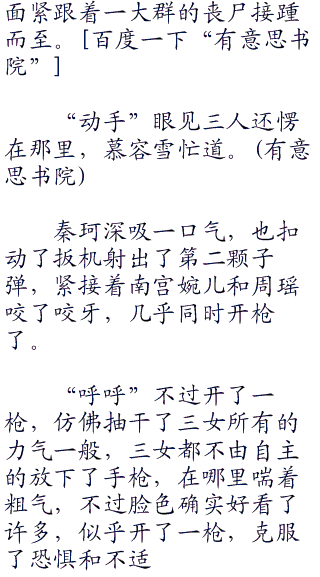 面紧跟着一大群的丧尸接踵
而至。[百度一下“有意思书
院”]
“动手”眼见三人还愣
在那里，慕容雪忙道。(有意
思书院)
秦珂深吸一口气，也扣
动了扳机射出了第二颗子
弹，紧接着南宫婉儿和周瑶
咬了咬牙，几乎同时开枪
了。
“呼呼”不过开了一
枪，仿佛抽干了三女所有的
力气一般，三女都不由自主
的放下了手枪，在哪里喘着
粗气，不过脸色确实好看了
许多，似乎开了一枪，克服
了恐惧和不适